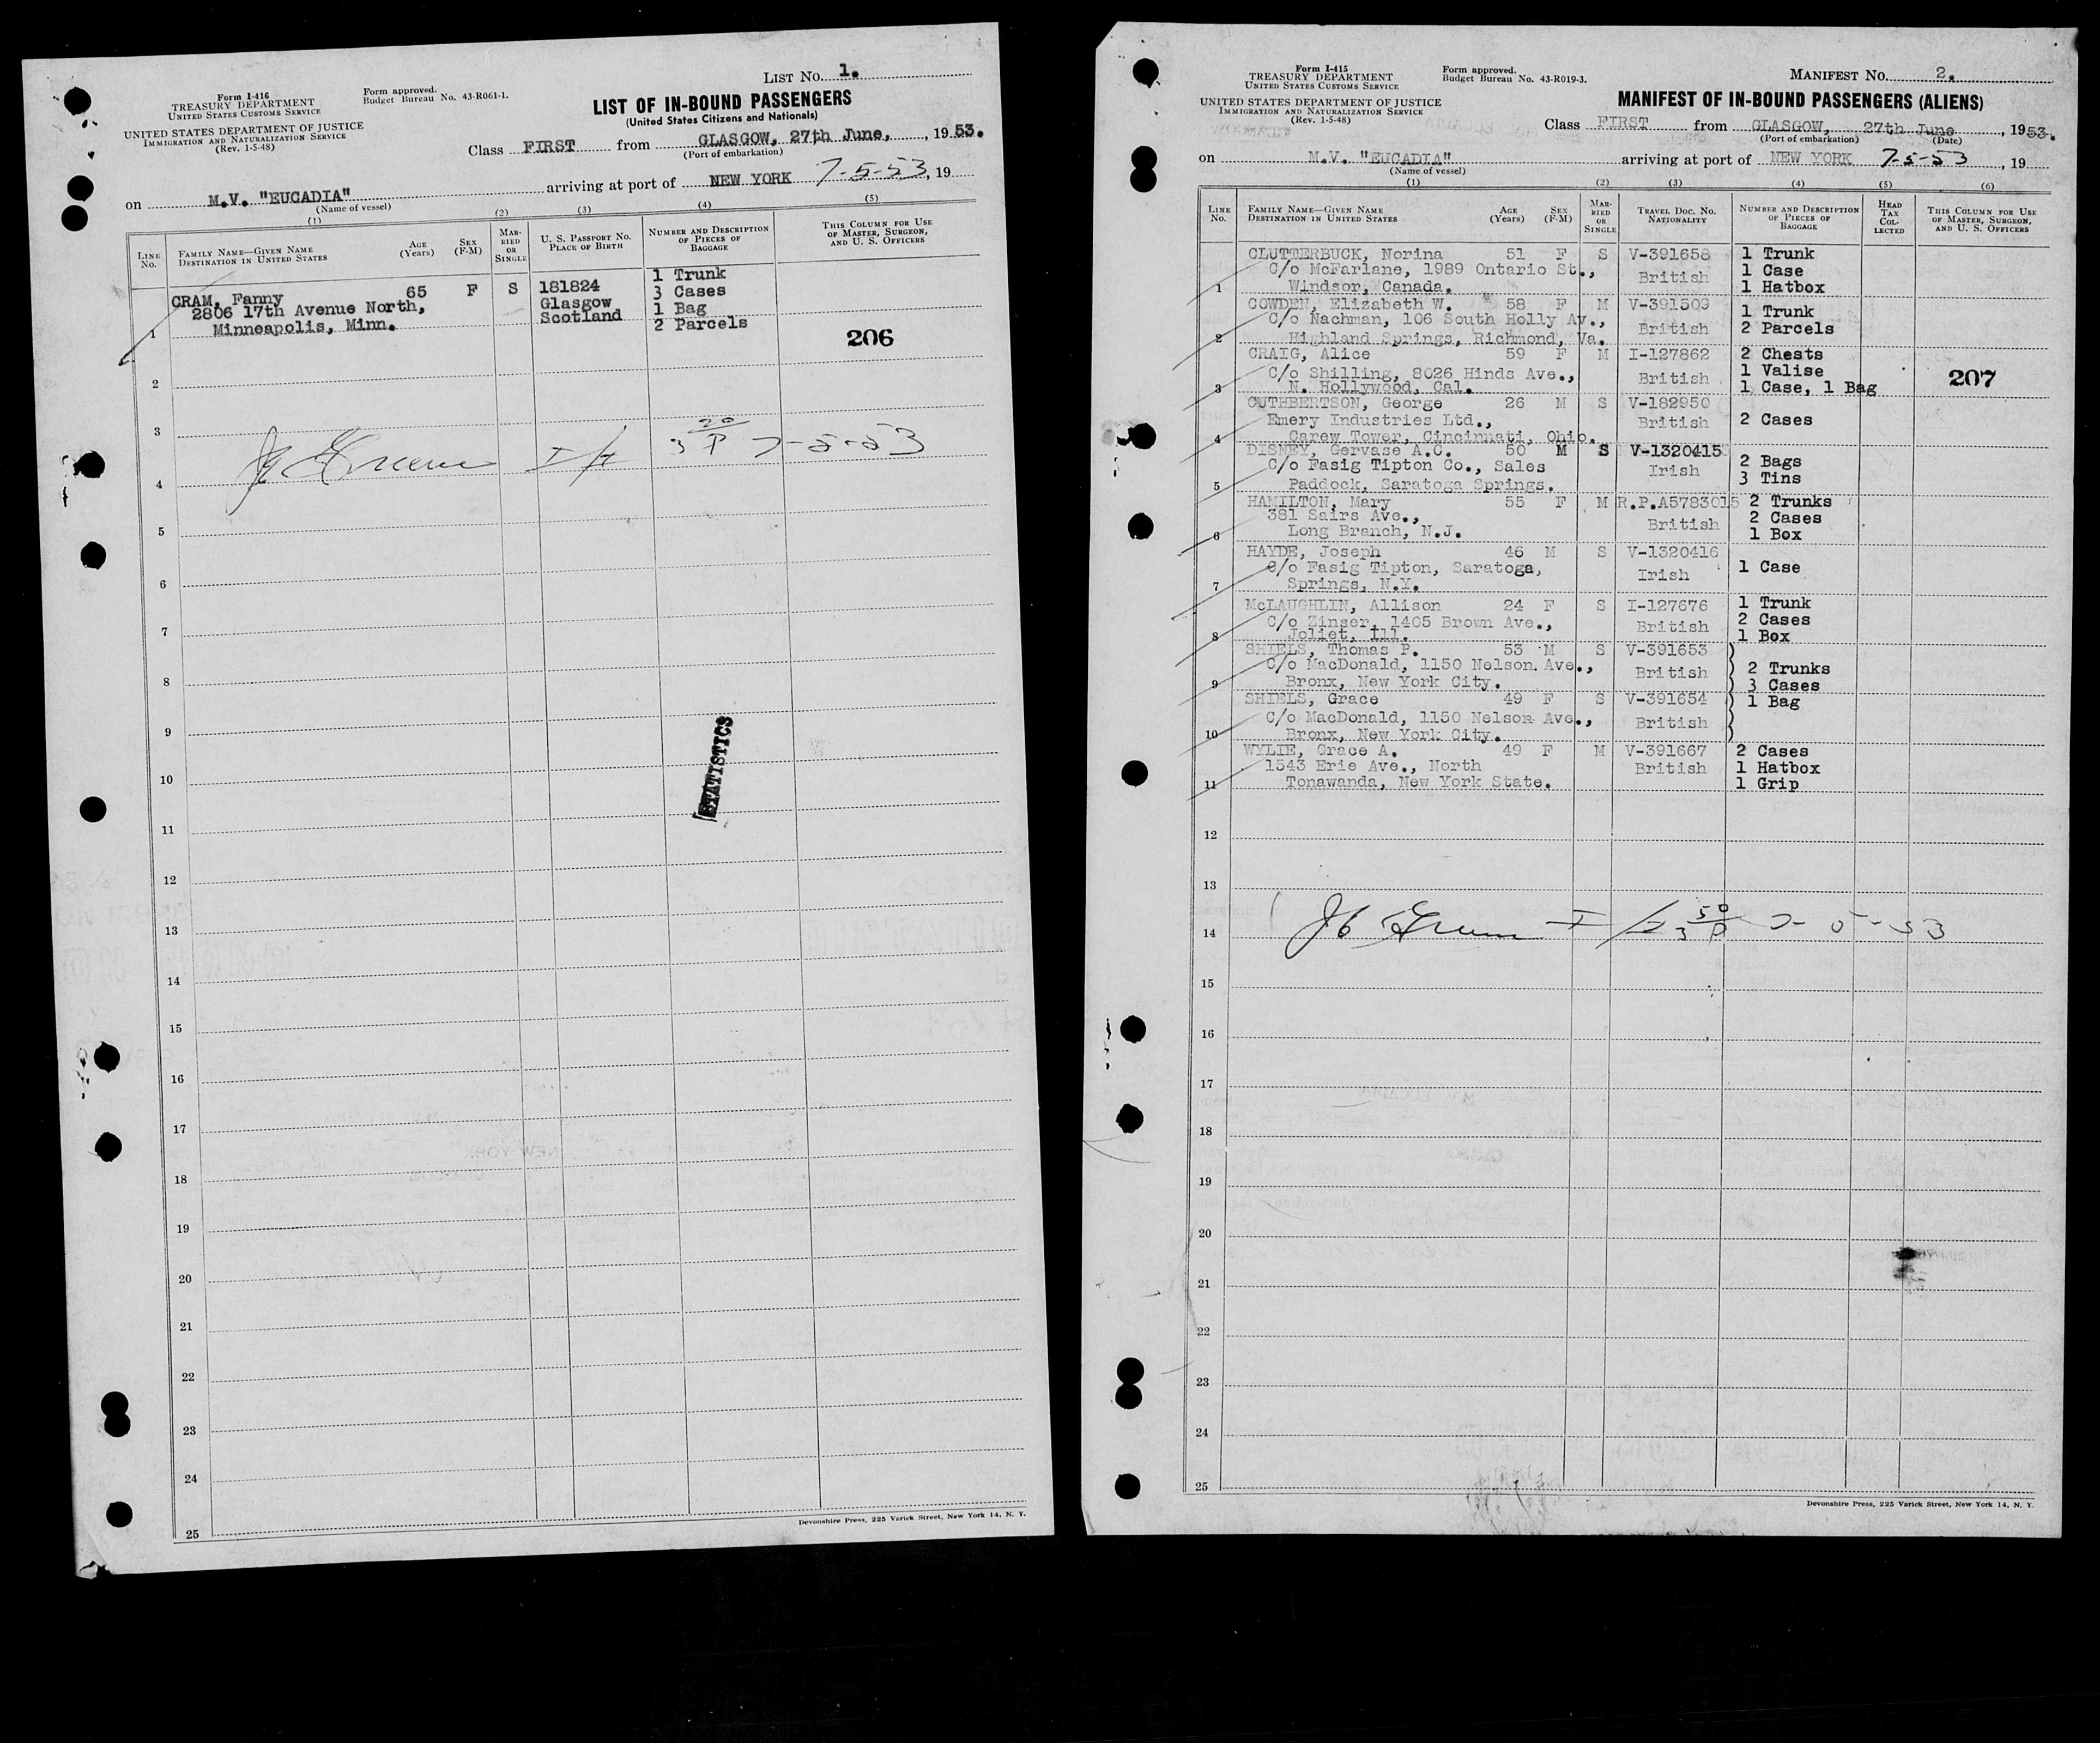 LIST No. 1.
Form I-416
TREASURY DEPARTMENT
UNITED STATES CUSTOMS SERVICE
Form approved.
Budget Bureau No. 43-R061-1.
UNITED STATES DEPARTMENT OF JUSTICE
IMMIGRATION AND NATURALIZATION SERVICE
(Rev. 1-5-48)
LIST OF IN-BOUND PASSENGERS
(United States Citizens and Nationals)
Class FIRST from GLASGOW, 27th June, , 1953.
(Port of embarkation)
on M.V. "EUCADIA" arriving at port of NEW YORK 7-5-53, 19
(Name of vessel)
(1) (2) (3) (4) (5)
LINE No. FAMILY NAME—GIVEN NAME DESTINATION IN UNITED STATES AGE (Years) SEX (F-M) MARRIED OR SINGLE U. S. PASSPORT No. PLACE OF BIRTH NUMBER AND DESCRIPTION OF PIECES OF BAGGAGE THIS COLUMN FOR USE OF MASTER, SURGEON, AND U. S. OFFICERS
1 CRAM, Fanny 65 F S 181824 1 Trunk
2806 17th Avenue North, Glasgow 3 Cases
Minneapolis, Minn. Scotland 1 Bag
2 Parcels
206
2
3
4
7-5-53
5
6
7
8
9
STATISTICS
10
11
12
13
14
15
16
17
18
19
20
21
22
23
24
25
Devonshire Press, 225 Varick Street, New York 14, N. Y.
Form I-415
TREASURY DEPARTMENT
UNITED STATES CUSTOMS SERVICE
Form approved.
Budget Bureau No. 43-R019-3.
MANIFEST No. 2.
UNITED STATES DEPARTMENT OF JUSTICE
IMMIGRATION AND NATURALIZATION SERVICE
(Rev. 1-5-48)
MANIFEST OF IN-BOUND PASSENGERS (ALIENS)
Class FIRST from GLASGOW, 27th June , 1953.
(Port of embarkation) (Date)
on M.V. "EUCADIA" arriving at port of NEW YORK 7-5-53, 19
(Name of vessel)
(1) (2) (3) (4) (5) (6)
LINE No. FAMILY NAME—GIVEN NAME DESTINATION IN UNITED STATES AGE (Years) SEX (F-M) MARRIED OR SINGLE TRAVEL DOC. NO. NATIONALITY NUMBER AND DESCRIPTION OF PIECES OF BAGGAGE HEAD TAX COLLECTED THIS COLUMN FOR USE OF MASTER, SURGEON, AND U. S. OFFICERS
CLUTTERBUCK, Norina 51 F S V-391658 1 Trunk
C/o McFarlane, 1989 Ontario St., British 1 Case
1 Windsor, Canada. 1 Hatbox
COWDEN, Elizabeth W. 58 F M V-391509 1 Trunk
C/o Nachman, 106 South Holly Av., British 2 Parcels
2 Highland Springs, Richmond, Va.
CRAIG, Alice 59 F M I-127862 2 Chests
C/o Shilling, 8026 Hinds Ave., British 1 Valise
3 N. Hollywood, Cal. 1 Case, 1 Bag
207
CUTHBERTSON, George 26 M S V-182950
Emery Industries Ltd., British 2 Cases
4 Carew Tower, Cincinnati, Ohio.
DISNEY, Gervase A.C. 50 M S V-1320415 2 Bags
C/o Fasig Tipton Co., Sales Irish 3 Tins
5 Paddock, Saratoga Springs.
HAMILTON, Mary 55 F M R.P.A5783015 2 Trunks
381 Sairs Ave., British 2 Cases
6 Long Branch, N.J. 1 Box
HAYDE, Joseph 46 M S V-1320416
C/o Fasig Tipton, Saratoga, Irish 1 Case
7 Springs, N.Y.
McLAUGHLIN, Allison 24 F S I-127676 1 Trunk
C/o Zinser, 1405 Brown Ave., British 2 Cases
8 Joliet, Ill. 1 Box
SHIELS, Thomas P. 53 M S V-391653
C/o MacDonald, 1150 Nelson Ave., British 2 Trunks
9 Bronx, New York City. 3 Cases
SHIELS, Grace 49 F S V-391654 1 Bag
C/o MacDonald, 1150 Nelson Ave., British
10 Bronx, New York City.
WYLIE, Grace A. 49 F M V-391667 2 Cases
1543 Erie Ave., North British 1 Hatbox
11 Tonawanda, New York State. 1 Grip
12
13
14 7-5-53
15
16
17
18
19
20
21
22
23
24
25
Devonshire Press, 225 Varick Street, New York 14, N. Y.